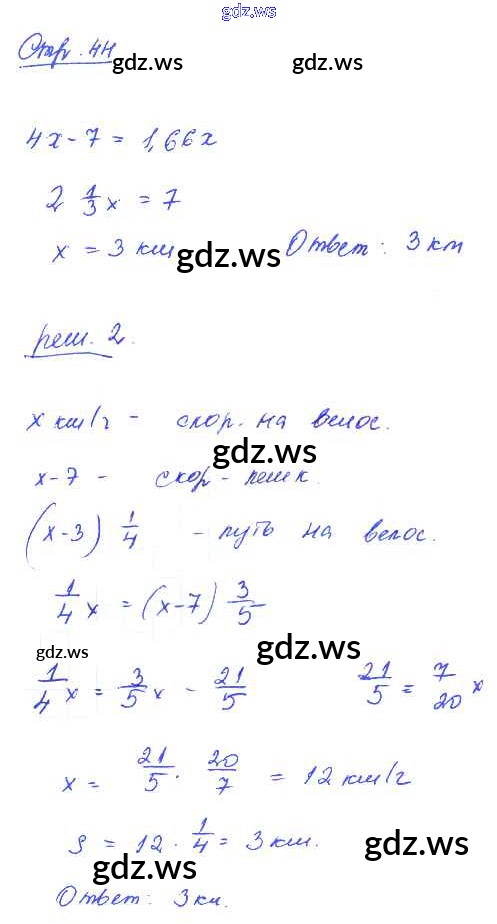 gdz.ws
Стр. 44
gdz.ws gdz.ws
4x - 7 = 1,66x
2 1/3 x = 7
x = 3 км Ответ: 3 км
gdz.ws
реш. 2.
x км/ч - скор. на велос.
gdz.ws
x - 7 - скор - пешк.
(x - 3) 1/4 - путь на велос.
1/4 x = (x - 7) 3/5
gdz.ws gdz.ws
1/4 x = 3/5 x - 21/5 21/5 = 7/20 x
gdz.ws
x = 21/5 · 20/7 = 12 км/ч
S = 12 · 1/4 = 3 км.
gdz.ws gdz.ws
Ответ: 3 км.